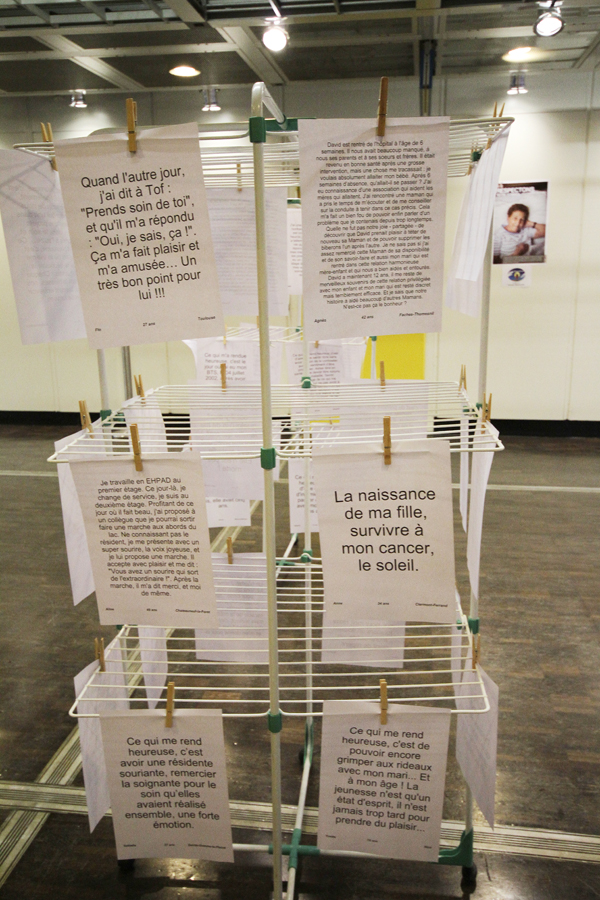 Quand l'autre jour,
j'ai dit à Tof :
"Prends soin de toi",
et qu'il m'a répondu
: "Oui, je sais, ça !".
Ça m'a fait plaisir et
m'a amusée... Un
très bon point pour
lui !!!
27 ans
Toulouse
David est rentré de l'hôpital à l'âge de 6
semaines. Il nous avait beaucoup manqué, à
nous ses parents et à ses soeurs et frères. Il était
revenu en bonne santé après une grosse
intervention, mais une chose me tracassait : je
voulais absolument allaiter mon bébé. Après 6
semaines d'absence, qu'allait-il se passer ? J'ai
eu connaissance d'une association qui aident les
mères qui allaitent. J'ai rencontré une maman qui
a pris le temps de m'écouter et de me conseiller
sur la conduite à tenir dans ce cas précis. Cela
m'a fait un bien fou de pouvoir enfin parler d'un
problème que je contenais depuis trop longtemps.
Quelle ne fut pas notre joie - partagée - de
découvrir que David prenait plaisir à téter de
nouveau sa Maman et de pouvoir supprimer les
biberons l'un après l'autre. Je ne sais pas si j'ai
assez remercié cette Maman de sa disponibilité
et de son savoir-faire et aussi mon mari qui est
rentré dans cette relation harmonieuse
mère-enfant et qui nous a bien aidés et entourés.
David a maintenant 12 ans, il me reste de
merveilleux souvenirs de cette relation privilégiée
avec mon enfant et mon mari qui est resté discret
mais terriblement efficace. Et je sais que notre
histoire a aidé beaucoup d'autres Mamans.
N'est-ce pas ça le bonheur ?
Agnès
42 ans
Je travaille en EHPAD au
premier étage. Ce jour-là, je
change de service, je suis au
deuxième étage. Profitant de ce
jour où il fait beau, j'ai proposé à
un collègue que je pourrai sortir
faire une marche aux abords du
lac. Ne connaissant pas le
résident, je me présente avec un
super sourire, la voix joyeuse, et
je lui propose une marche. Il
accepte avec plaisir et me dit :
"Vous avez un sourire qui sort
de l'extraordinaire !". Après la
marche, il m'a dit merci, et moi
de même.
La naissance
de ma fille,
survivre à
mon cancer,
le soleil.
Clermont-Ferrand
Ce qui me rend
heureuse, c'est
avoir une résidente
souriante, remercier
la soignante pour le
soin qu'elles
avaient réalisé
ensemble, une forte
émotion.
Ce qui me rend
heureuse, c'est de
pouvoir encore
grimper aux rideaux
avec mon mari... Et
à mon âge ! La
jeunesse n'est qu'un
état d'esprit, il n'est
jamais trop tard pour
prendre du plaisir...